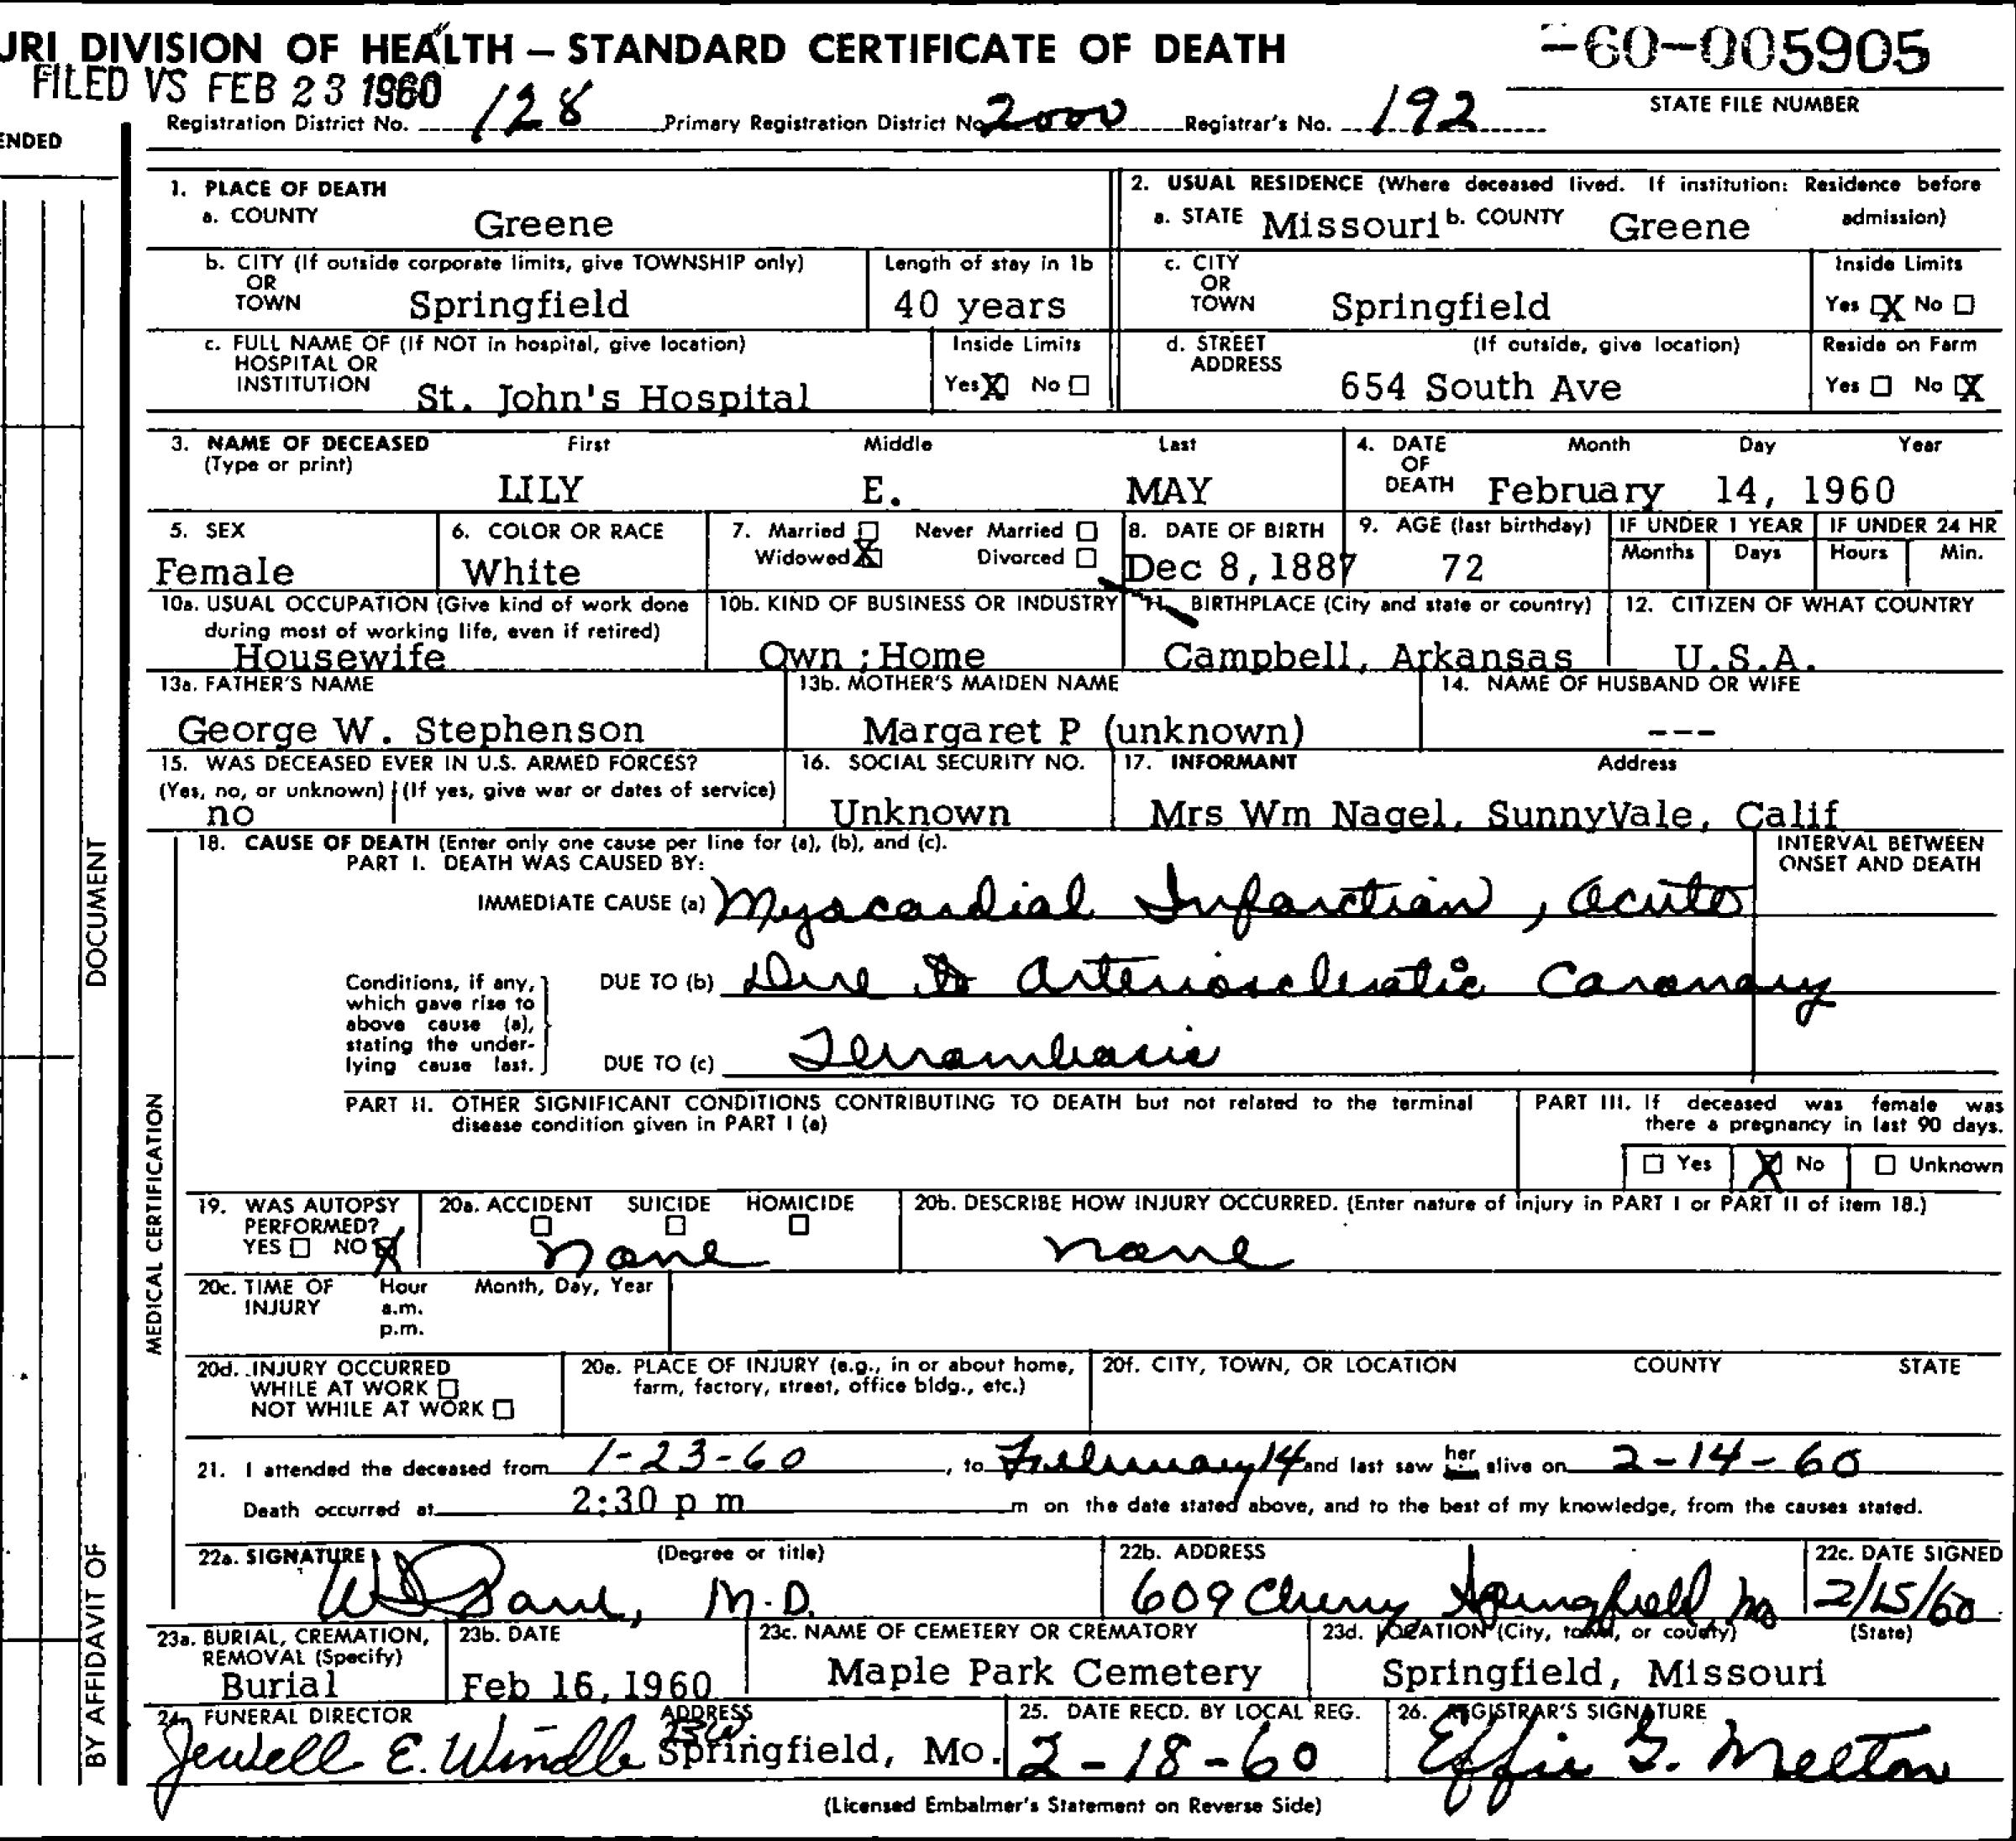 URI DIVISION OF HEALTH — STANDARD CERTIFICATE OF DEATH
-60-005905
FILED VS FEB 23 1960
STATE FILE NUMBER
Registration District No. 128 Primary Registration District No. 2000 Registrar's No. 192
ENDED
1. PLACE OF DEATH
a. COUNTY Greene
2. USUAL RESIDENCE (Where deceased lived. If institution: Residence before admission)
a. STATE Missouri b. COUNTY Greene
b. CITY (If outside corporate limits, give TOWNSHIP only) OR TOWN Springfield
Length of stay in 1b 40 years
c. CITY OR TOWN Springfield
Inside Limits Yes ☒ No ☐
c. FULL NAME OF (If NOT in hospital, give location) HOSPITAL OR INSTITUTION St. John's Hospital
Inside Limits Yes ☒ No ☐
d. STREET ADDRESS (If outside, give location) 654 South Ave
Reside on Farm Yes ☐ No ☒
3. NAME OF DECEASED (Type or print) First Middle Last
LILY E. MAY
4. DATE OF DEATH Month Day Year
February 14, 1960
5. SEX Female
6. COLOR OR RACE White
7. Married ☐ Never Married ☐ Widowed ☒ Divorced ☐
8. DATE OF BIRTH Dec 8, 1887
9. AGE (last birthday) 72
IF UNDER 1 YEAR Months Days
IF UNDER 24 HR Hours Min.
10a. USUAL OCCUPATION (Give kind of work done during most of working life, even if retired) Housewife
10b. KIND OF BUSINESS OR INDUSTRY Own ; Home
11. BIRTHPLACE (City and state or country) Campbell, Arkansas
12. CITIZEN OF WHAT COUNTRY U.S.A.
13a. FATHER'S NAME George W. Stephenson
13b. MOTHER'S MAIDEN NAME Margaret P (unknown)
14. NAME OF HUSBAND OR WIFE ---
15. WAS DECEASED EVER IN U.S. ARMED FORCES? (Yes, no, or unknown) (If yes, give war or dates of service) no
16. SOCIAL SECURITY NO. Unknown
17. INFORMANT Address Mrs Wm Nagel, SunnyVale, Calif
DOCUMENT
MEDICAL CERTIFICATION
BY AFFIDAVIT OF
18. CAUSE OF DEATH (Enter only one cause per line for (a), (b), and (c).
PART I. DEATH WAS CAUSED BY:
INTERVAL BETWEEN ONSET AND DEATH
IMMEDIATE CAUSE (a) Myocardial Infarction, acute
Conditions, if any, which gave rise to above cause (a), stating the underlying cause last.
DUE TO (b) Due to arteriosclerotic Coronary
DUE TO (c)
PART II. OTHER SIGNIFICANT CONDITIONS CONTRIBUTING TO DEATH but not related to the terminal disease condition given in PART I (a)
PART III. If deceased was female was there a pregnancy in last 90 days.
☐ Yes ☒ No ☐ Unknown
19. WAS AUTOPSY PERFORMED? YES ☐ NO ☒
20a. ACCIDENT ☐ SUICIDE ☐ HOMICIDE ☐ none
20b. DESCRIBE HOW INJURY OCCURRED. (Enter nature of injury in PART I or PART II of item 18.) none
20c. TIME OF INJURY Hour a.m. p.m. Month, Day, Year
20d. INJURY OCCURRED WHILE AT WORK ☐ NOT WHILE AT WORK ☐
20e. PLACE OF INJURY (e.g., in or about home, farm, factory, street, office bldg., etc.)
20f. CITY, TOWN, OR LOCATION COUNTY STATE
21. I attended the deceased from 1-23-60, to February 14 and last saw her alive on 2-14-60
Death occurred at 2:30 p m m on the date stated above, and to the best of my knowledge, from the causes stated.
22a. SIGNATURE (Degree or title) M.D.
22b. ADDRESS 609 Cherry Springfield, Mo
22c. DATE SIGNED 2/15/60
23a. BURIAL, CREMATION, REMOVAL (Specify) Burial
23b. DATE Feb 16, 1960
23c. NAME OF CEMETERY OR CREMATORY Maple Park Cemetery
23d. LOCATION (City, town, or county) (State) Springfield, Missouri
24. FUNERAL DIRECTOR ADDRESS Jewell E. Windle Springfield, Mo.
25. DATE RECD. BY LOCAL REG. 2-18-60
26. REGISTRAR'S SIGNATURE Effie G. Melton
(Licensed Embalmer's Statement on Reverse Side)